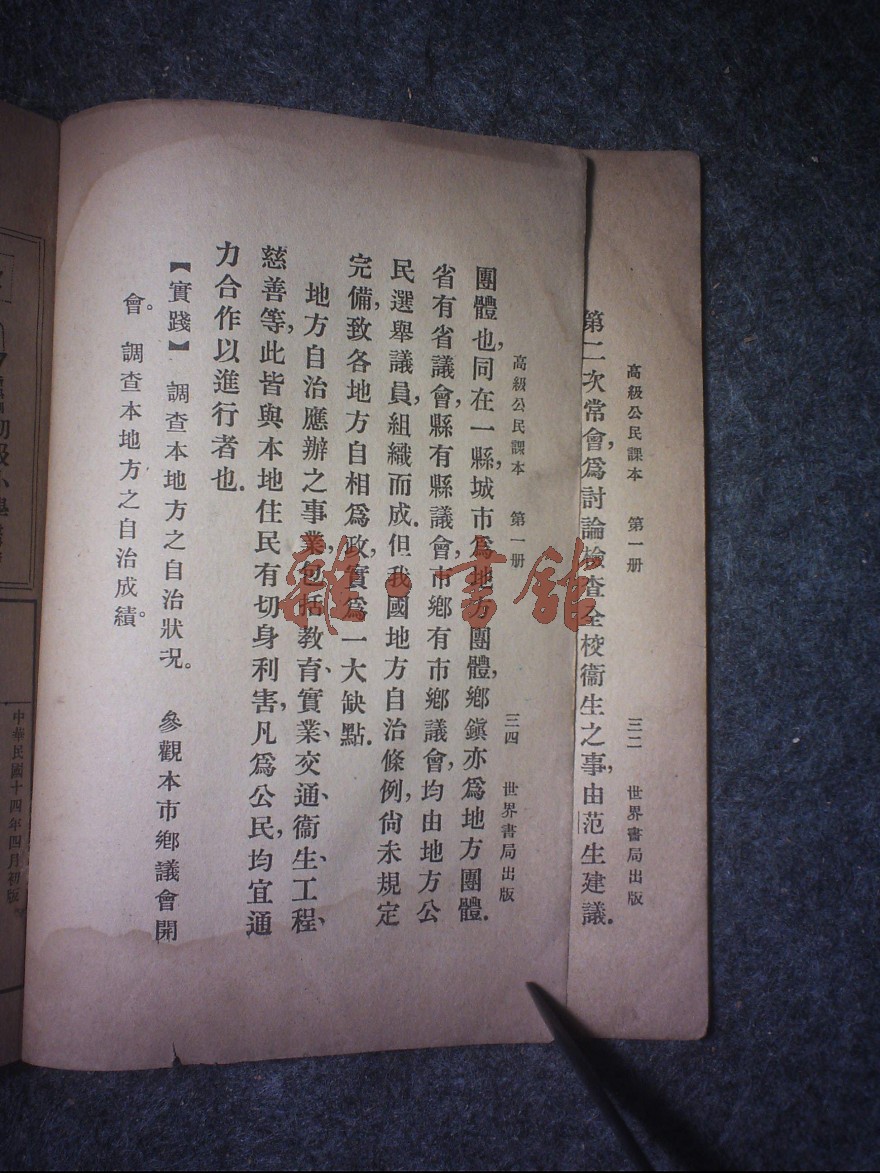 高級公民課本　第一册　三二　世界書局出版
第二次常會，爲討論檢查全校衞生之事，由范生建議．
高級公民課本　第一册　三四　世界書局出版
團體也，同在一縣，城市爲地方團體，鄉鎭亦爲地方團體．
省有省議會，縣有縣議會，市鄉有市鄉議會，均由地方公
民選舉議員，組織而成．但我國地方自治條例，尙未規定
完備，致各地方自相爲政，實爲一大缺點．
地方自治應辦之事業，包括教育、實業、交通、衞生、工程、
慈善等，此皆與本地住民有切身利害，凡爲公民，均宜通
力合作以進行者也．
【實踐】　調查本地方之自治狀况。　參觀本市鄉議會開
會。　調查本地方之自治成績。
初級小學
中華民國十四年四月初版
雜·書館